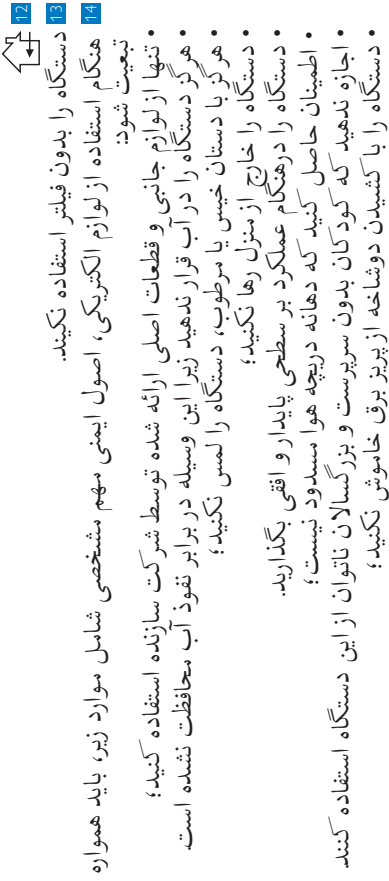 12
13 دستگاه را بدون فیلتر استفاده نکیند.
14 هنگام استفاده از لوازم الکتریکی، اصول ایمنی مهم مشخصی شامل موارد زیر، باید همواره
تبعیت شود:
• تنها از لوازم جانبی و قطعات اصلی ارائه شده توسط شرکت سازنده استفاده کنید؛
• هرگز دستگاه را در آب قرار ندهید زیرا این وسیله در برابر نفوذ آب محافظت نشده است.
• هرگز با دستان خیس یا مرطوب، دستگاه را لمس نکنید؛
• دستگاه را خارج از منزل رها نکنید؛
• دستگاه را درهنگام عملکرد بر سطحی پایدار و افقی بگذارید.
• اطمینان حاصل کنید که دهانه دریچه هوا مسدود نیست؛
• اجازه ندهید که کودکان بدون سرپرست و بزرگسالان ناتوان از این دستگاه استفاده کنند.
• دستگاه را با کشیدن دوشاخه از پریز برق خاموش نکنید؛